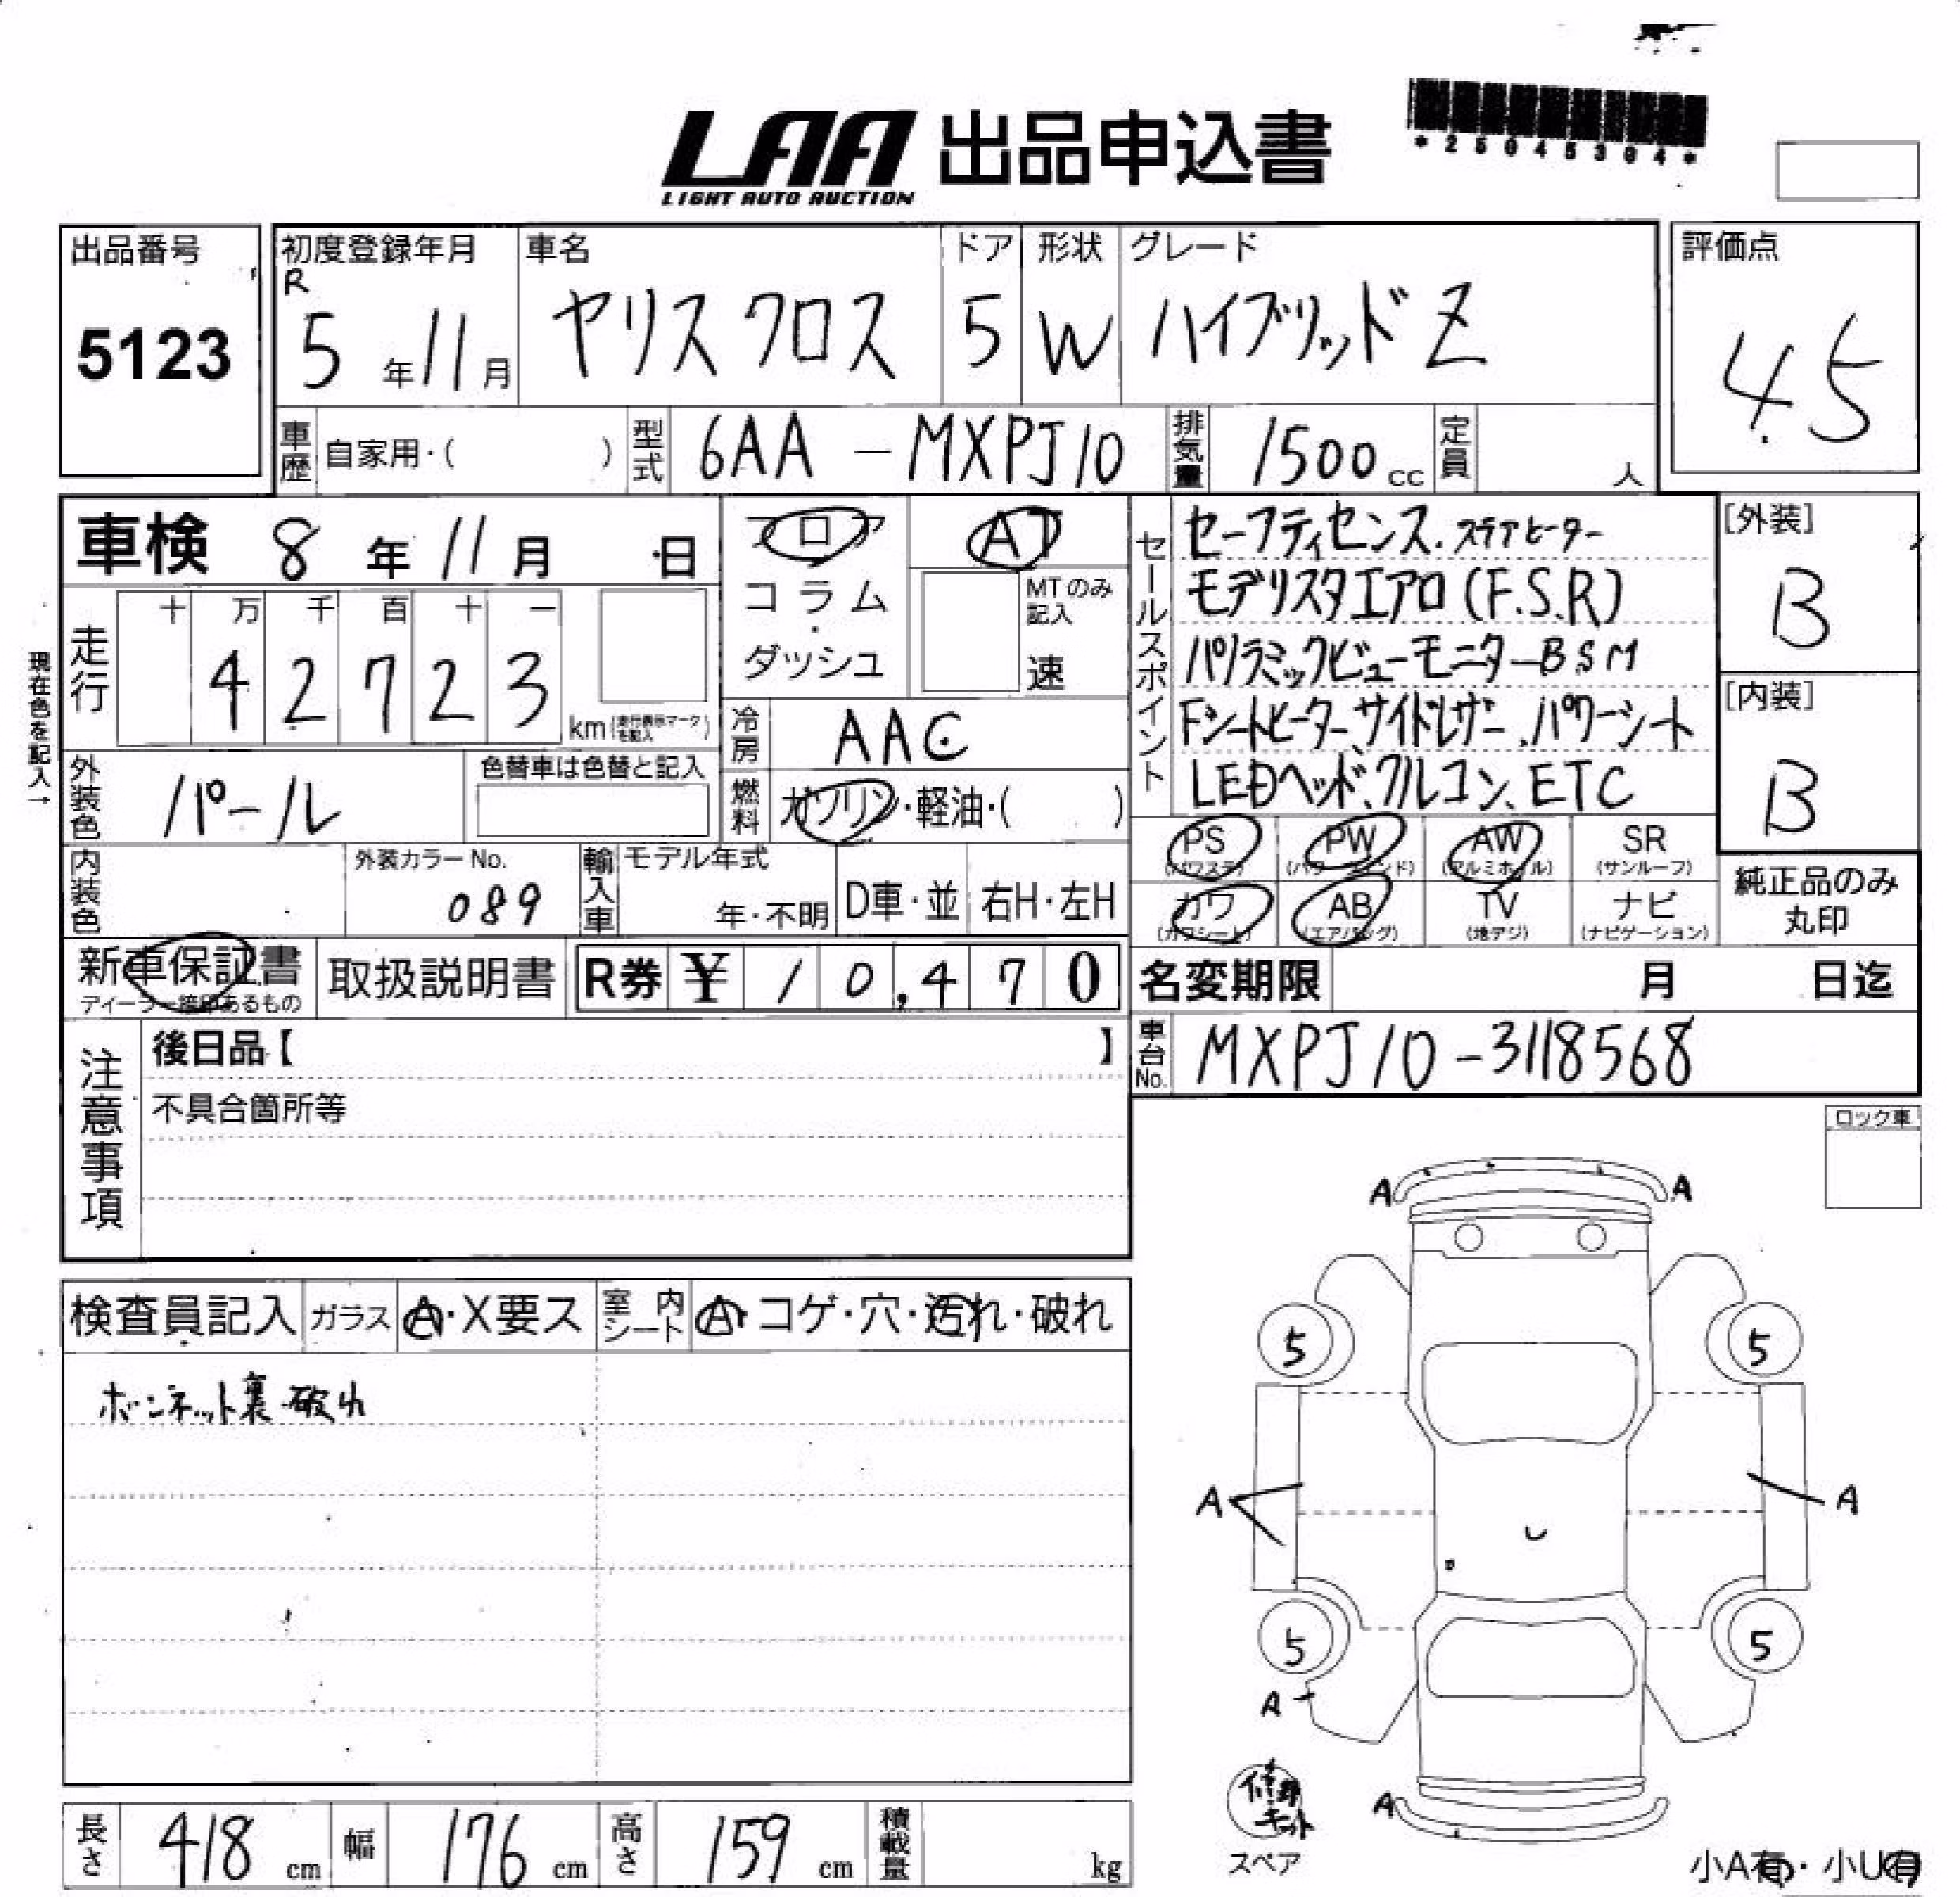 LAA 出品申込書
LIGHT AUTO AUCTION
*25045304*
出品番号
5123
初度登録年月
R
5年11月
車名
ヤリス クロス
ドア
5
形状
W
グレード
ハイブリッド Z
評価点
4.5
車歴 自家用・( )
型式 6AA-MXPJ10
排気量 1500cc
定員 人
車検 8年11月 日
フロア
コラム
・
ダッシュ
AT
MTのみ記入
速
現在色を記入→
走行
十 万 千 百 十 一
4 2 7 2 3
km(走行表示マークを記入)
冷房 AAC
燃料 ガソリン・軽油・( )
外装色 パール
色替車は色替と記入
内装色
外装カラーNo.
089
輸入車
モデル年式
年・不明
D車・並
右H・左H
セールスポイント
セーフティセンス.ステアヒーター
モデリスタエアロ(F.S.R)
パノラミックビューモニターBSM
Fシートヒーター、サイドレザー.パワーシート
LEDヘッド、クルコン、ETC
[外装]
B
[内装]
B
PS (パワステ)
PW (パワーウインド)
AW (アルミホイル)
SR (サンルーフ)
カワ (カワシート)
AB (エアバッグ)
TV (地デジ)
ナビ (ナビゲーション)
純正品のみ
丸印
新車保証書
ディーラー捺印あるもの
取扱説明書
R券 ¥ 10,470
名変期限 月 日迄
車台No. MXPJ10-3118568
注意事項
後日品【 】
不具合箇所等
ロック車
検査員記入
ガラス A・X要ス
室内シート A・コゲ・穴・汚れ・破れ
ボンネット裏破れ
A A
5 5
A A
5 5
A
A
修理キット
スペア
小A有・小U有
長さ 418cm
幅 176cm
高さ 159cm
積載量 kg